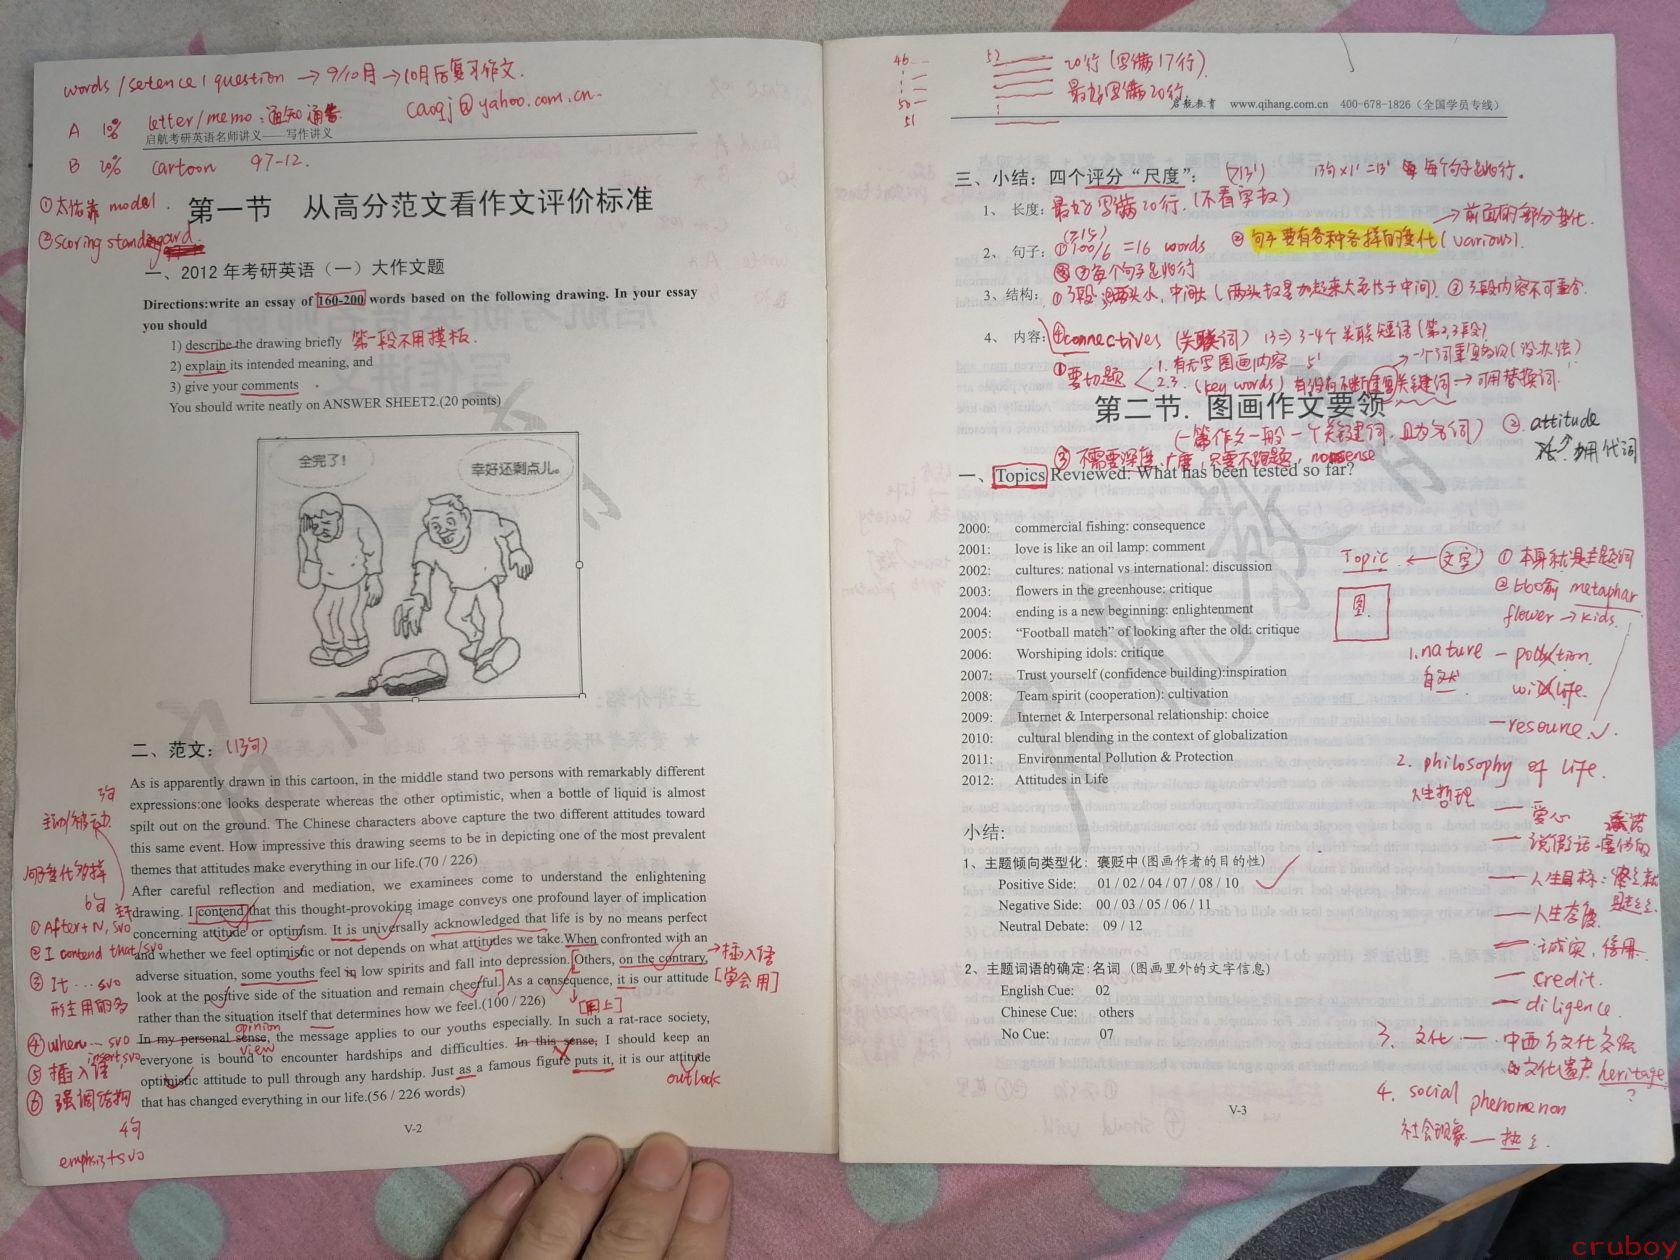 words/setence/question → 9/10月 → 10月后复习作文.
caoqj@yahoo.com.cn
A 10% letter/memo:通知 通告
启航考研英语名师讲义——写作讲义
B 20% cartoon 97-12.
①太依靠 model.
②scoring standard.
第一节 从高分范文看作文评价标准
一、2012年考研英语（一）大作文题
Directions:write an essay of 160-200 words based on the following drawing. In your essay
you should
1) describe the drawing briefly 第一段不用模板.
2) explain its intended meaning, and
3) give your comments
You should write neatly on ANSWER SHEET2.(20 points)
全完了！
幸好还剩点儿。
二、范文：(13句)
As is apparently drawn in this cartoon, in the middle stand two persons with remarkably different
expressions:one looks desperate whereas the other optimistic, when a bottle of liquid is almost
spilt out on the ground. The Chinese characters above capture the two different attitudes toward
this same event. How impressive this drawing seems to be in depicting one of the most prevalent
themes that attitudes make everything in our life.(70 / 226)
After careful reflection and mediation, we examinees come to understand the enlightening
drawing. I contend that this thought-provoking image conveys one profound layer of implication
concerning attitude or optimism. It is universally acknowledged that life is by no means perfect
and whether we feel optimistic or not depends on what attitudes we take.When confronted with an
adverse situation, some youths feel in low spirits and fall into depression. Others, on the contrary,
look at the positive side of the situation and remain cheerful. As a consequence, it is our attitude
rather than the situation itself that determines how we feel.(100 / 226)
In my personal sense, the message applies to our youths especially. In such a rat-race society,
everyone is bound to encounter hardships and difficulties. In this sense, I should keep an
optimistic attitude to pull through any hardship. Just as a famous figure puts it, it is our attitude
that has changed everything in our life.(56 / 226 words)
3句
主动/被动
句子变化多样
6句
①After+N, svo
②I contend that/svo
③It ... svo
形主用的多
④when... svo
insert, svo
⑤插入语
⑥强调结构
4句
emphsis+svo
→插入语
[学会用]
[用上]
opinion
view
outlook
V-2
46
50
51
52
20行(写满17行)
最好写满20行
启航教育 www.qihang.com.cn 400-678-1826（全国学员专线）
三、小结：四个评分“尺度”： (≥13') 13句×1'=13' 每个句子1行.
1、 长度：最好写满20行.(不看字数)
→前面的部分变化.
2、 句子：①100/6 =16 words ②句子要有各种各样的变化(various).
(≥15)
③每个句子1行
3、结构：①3段,两头小,中间大(两头加起来大于中间) ②3段内容不可重合
4、 内容：④connectives (关联词) 13⇒3-4个关联短语(第2,3段)
①要切题 1.有无写图画内容 5' →一个词重复的(没办法)
2.3. (key words)有没有不断重复关键词→可用替换词.
第二节. 图画作文要领
(一篇作文一般一个关键词,且为名词) ②.attitude
用代词
③不需要深度,广度,只要不跑题, nonsense
一、Topics Reviewed: What has been tested so far?
2000: commercial fishing: consequence
2001: love is like an oil lamp: comment
2002: cultures: national vs international: discussion
2003: flowers in the greenhouse: critique
2004: ending is a new beginning: enlightenment
2005: “Football match” of looking after the old: critique
2006: Worshiping idols: critique
2007: Trust yourself (confidence building):inspiration
2008: Team spirit (cooperation): cultivation
2009: Internet & Interpersonal relationship: choice
2010: cultural blending in the context of globalization
2011: Environmental Pollution & Protection
2012: Attitudes in Life
Topic ← 文字 ①本身就是主题词
图
②比喻 metaphar
flower → kids.
1.nature — pollution.
自然 wildlife.
—resource.
2. philosophy of life.
人生哲理 — 爱心 承诺
— 说假话-虚伪的
— 人生目标:
— 人生态度
— 诚实, 信用
— credit.
— diligence.
3. 文化 — 中西方文化交路
文化遗产 heritage
?
4. social phenomenon
社会现象 — 热点
小结:
1、主题倾向类型化: 褒贬中(图画作者的目的性)
Positive Side: 01 / 02 / 04 / 07 / 08 / 10
Negative Side: 00 / 03 / 05 / 06 / 11
Neutral Debate: 09 / 12
2、主题词语的确定:名词 (图画里外的文字信息)
English Cue: 02
Chinese Cue: others
No Cue: 07
V-3
cruboy